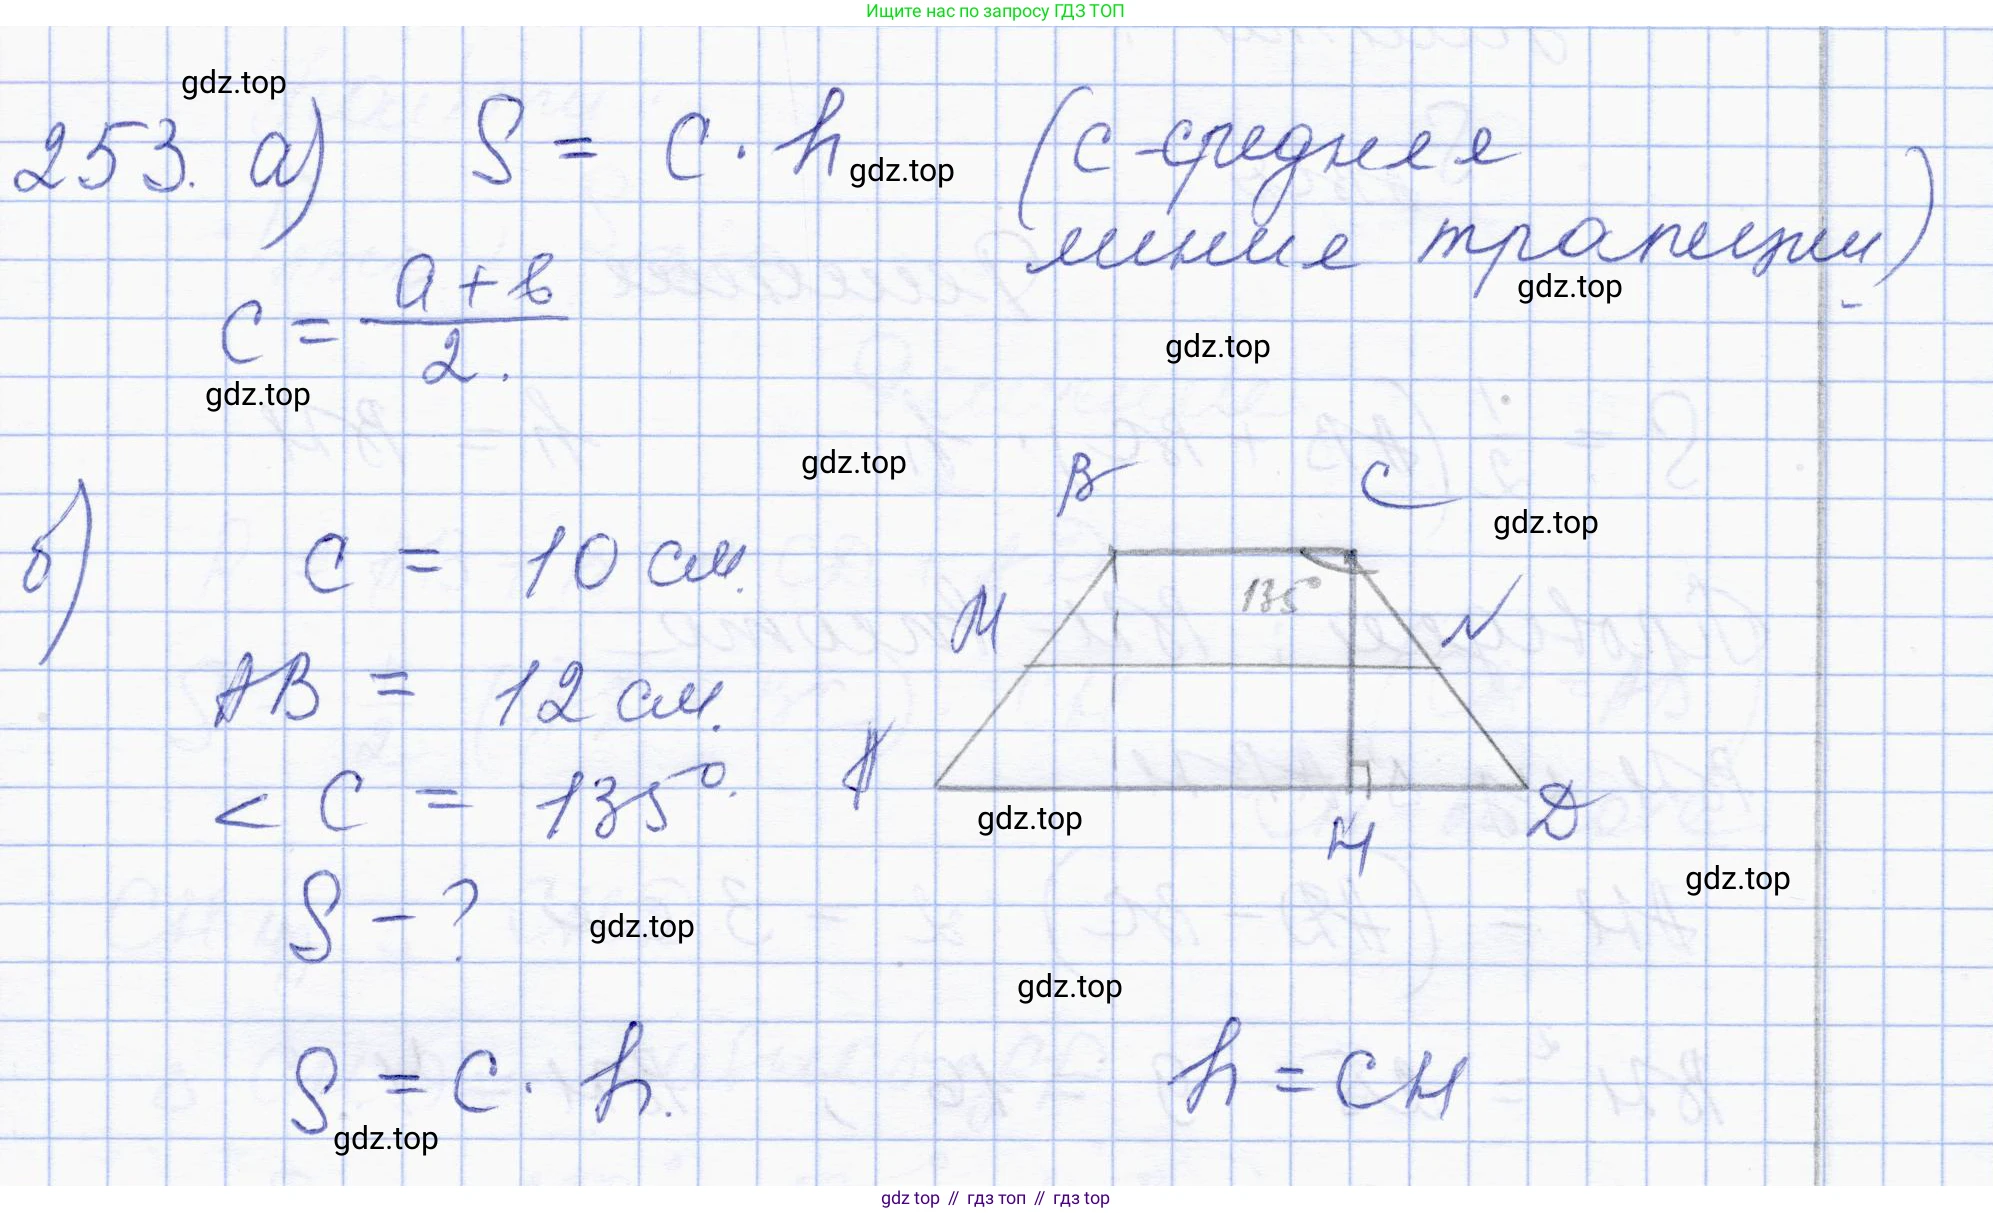 Ищите нас по запросу ГДЗ ТОП
gdz.top
253. а) S = c · h (с - средняя
gdz.top
линия трапеции)
gdz.top
c = a + b / 2.
gdz.top
gdz.top
gdz.top
B C
gdz.top
б) c = 10 см.
135°
M N
AB = 12 см.
A D
H
gdz.top
< C = 135°.
gdz.top
S - ?
gdz.top
gdz.top
S = c · h. h = CH
gdz.top
gdz top // гдз топ // гдз top